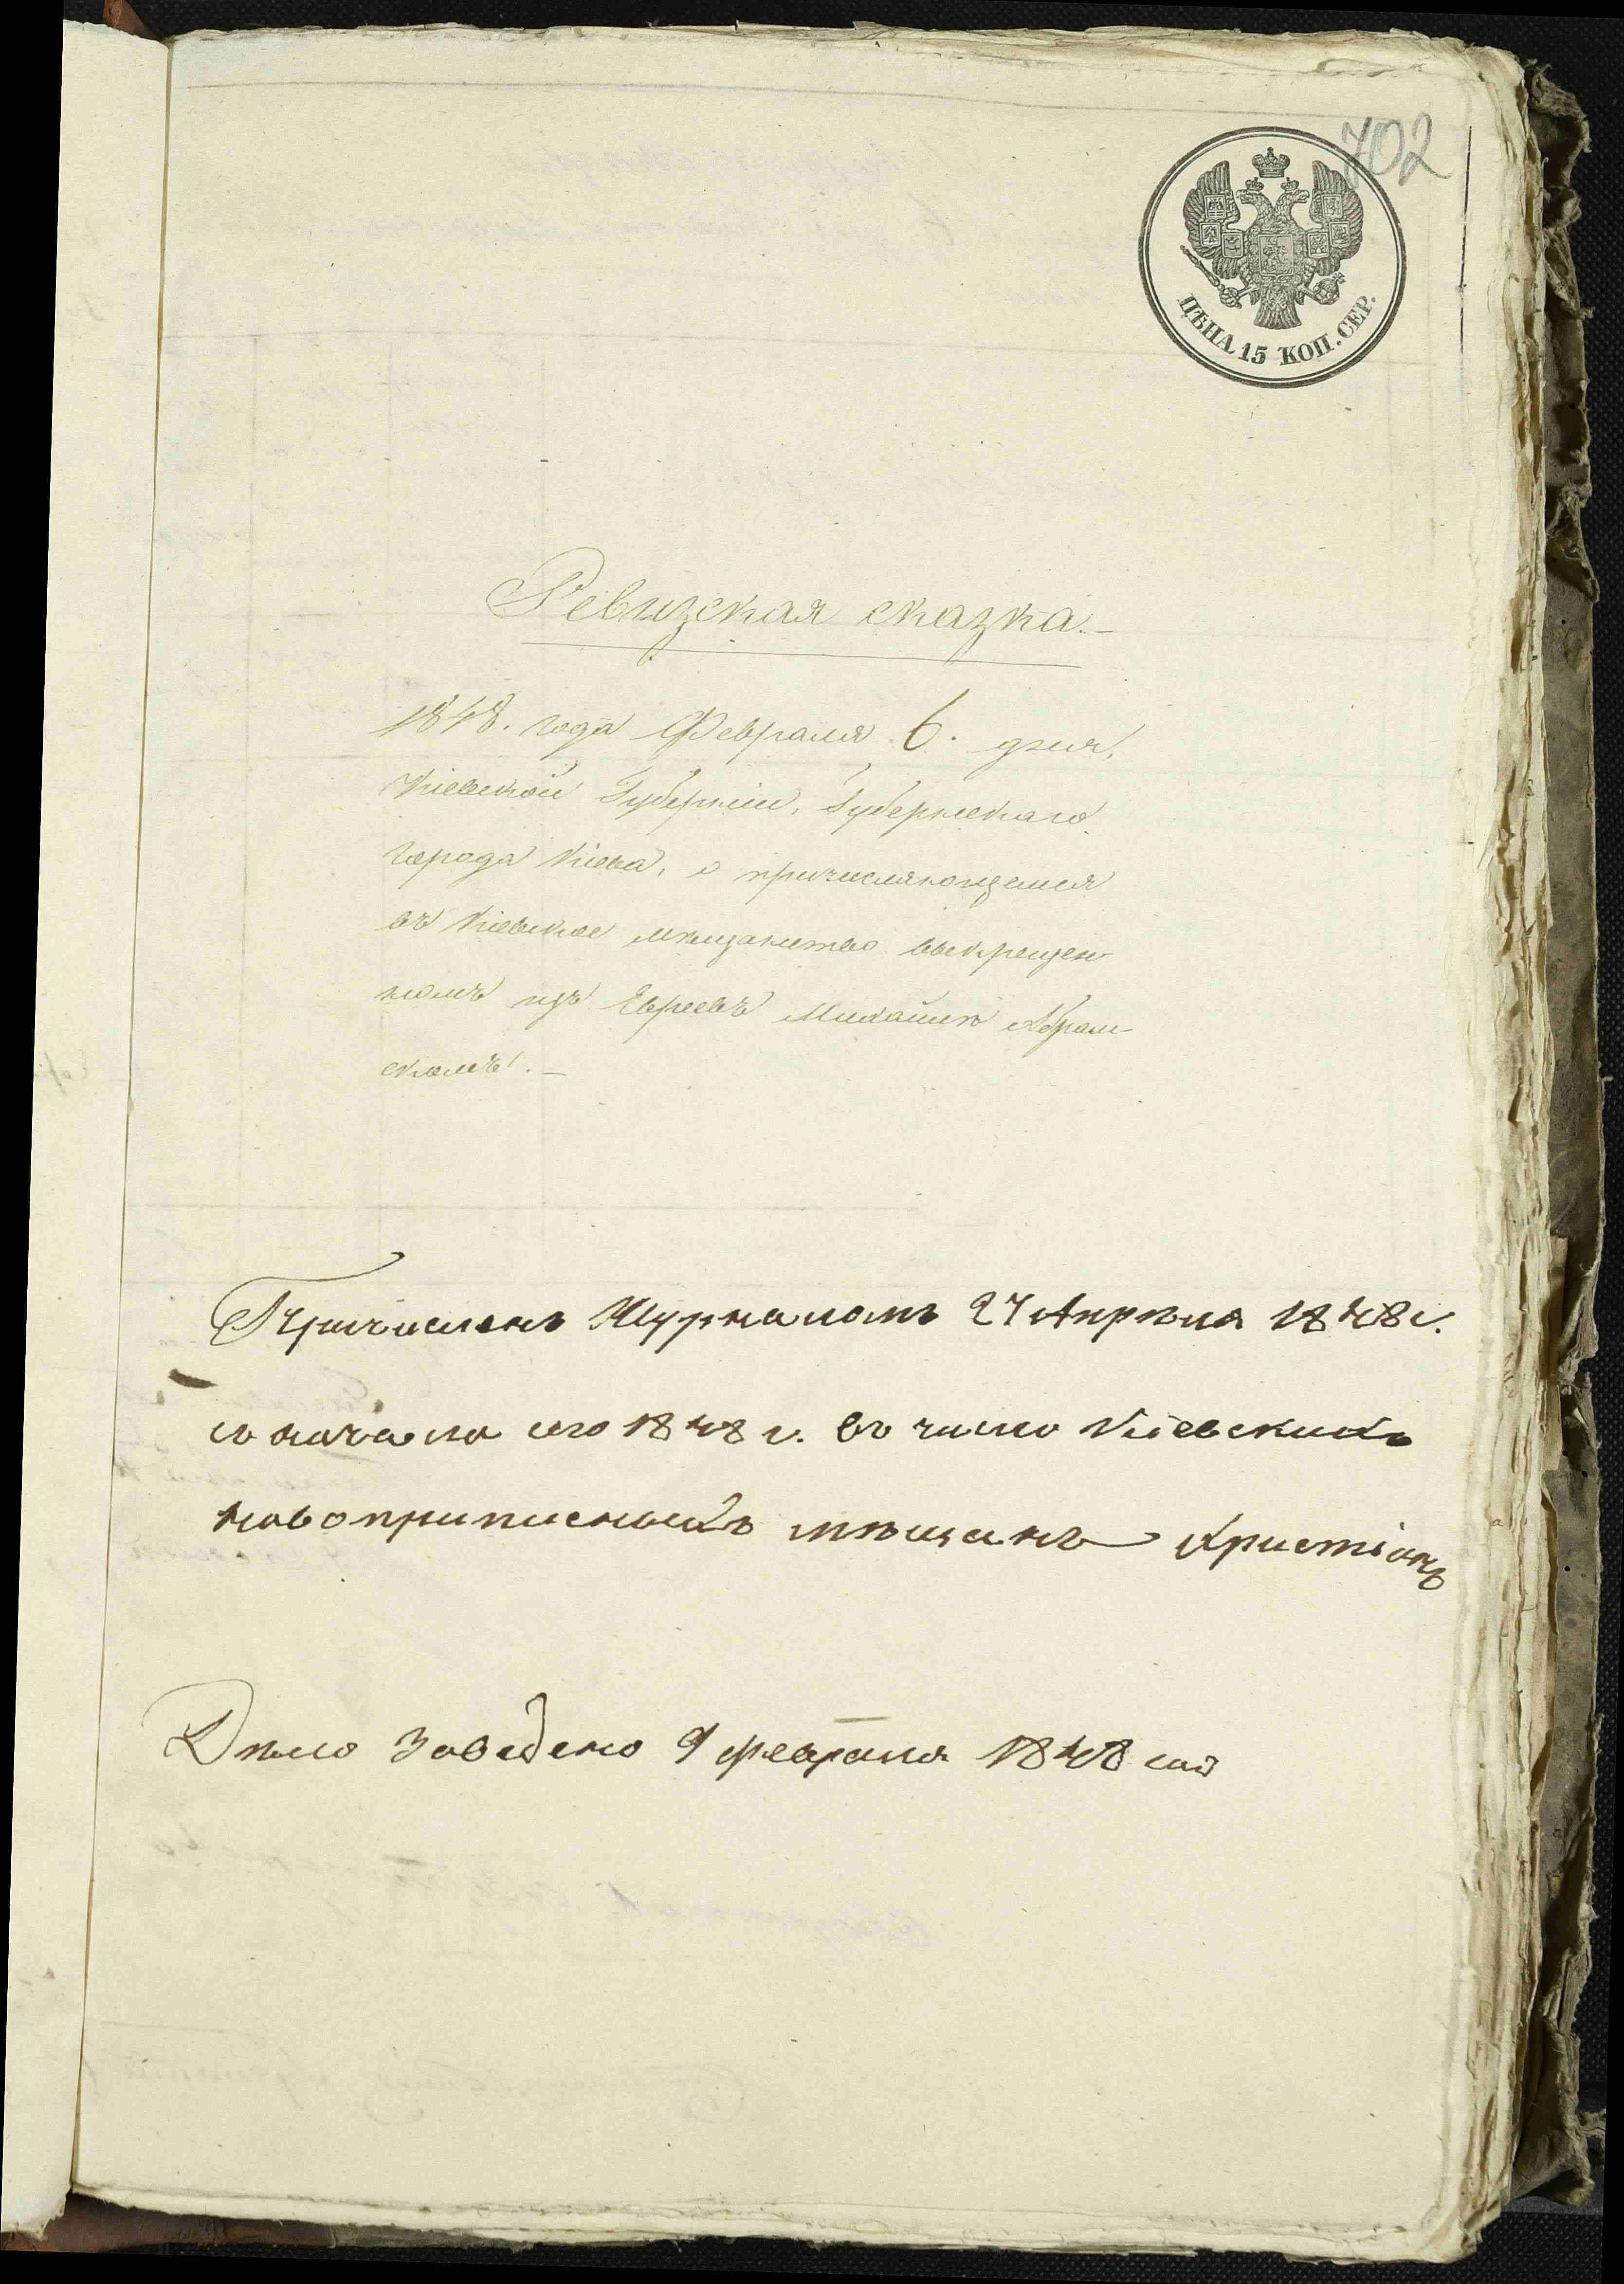 702
ЦѢНА 15 КОП. СЕР.
Ревизская сказка.–
1848. года Февраля 6. дня,
Кіевской Губерніи, Губернскаго
города Кіева, о причисляющемся
въ Кіевское мѣщанство выкрещен-
номъ изъ Евреевъ Михаилѣ Абрам-
скомъ. –
Причисленъ Журналомъ 27 Апрѣля 1848 г.
съ начала сего 1848 г. въ число Кіевскихъ
новоприписныхъ мѣщанъ Христіанъ
Дѣло заведено 9 февраля 1848 год